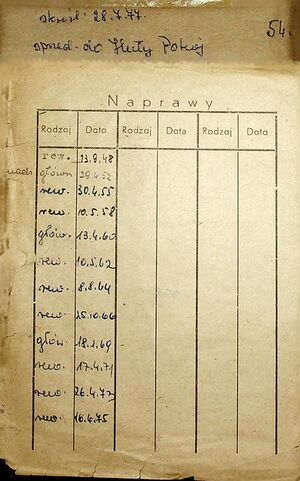 skreśl. 28.7.77.
sprzed. do Huty Pokój
54
Naprawy
Rodzaj Data Rodzaj Data Rodzaj Data
rew. 23.9.48
główn 29.4.52
rew. 30.4.55
rew. 10.5.58
głów. 13.4.60
rew. 10.5.62
rew. 8.8.64
rew. 25.10.66
głów. 18.1.69
rew. 17.4.71
rew. 26.4.73
rew. 16.6.75